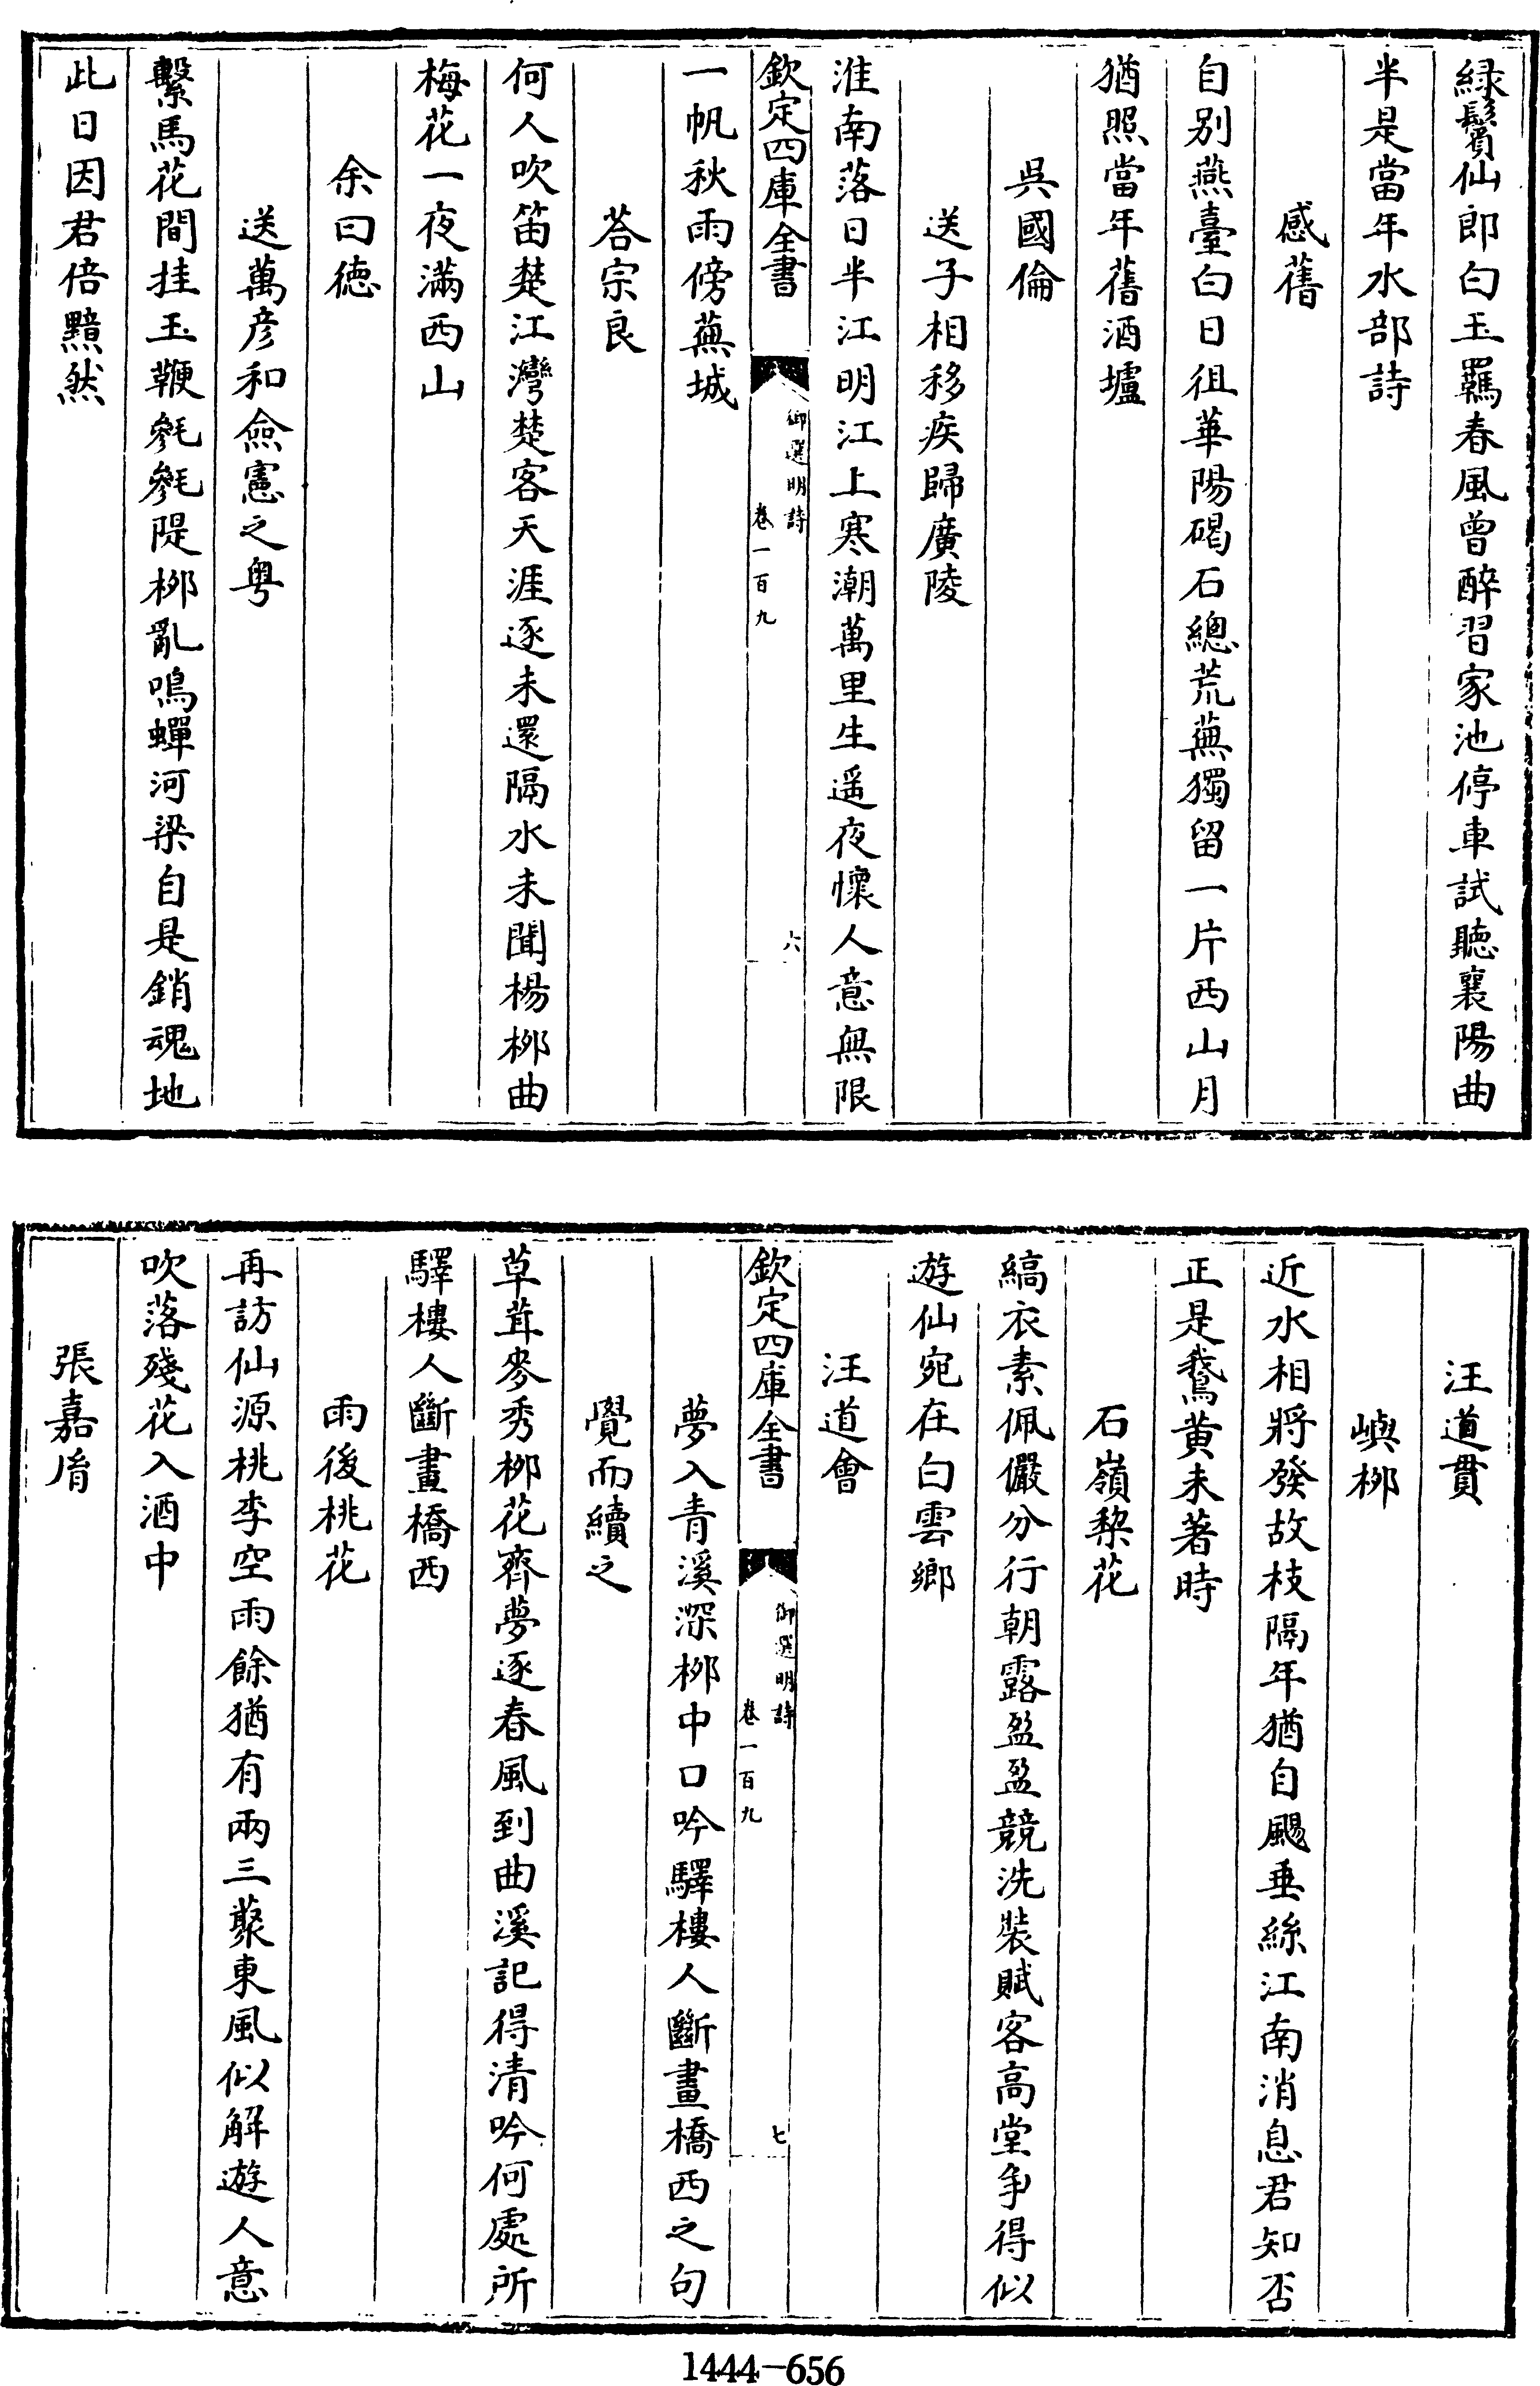 綠鬢仙郎白玉羈春風曾醉習家池停車試聽襄陽曲
半是當年水部詩
感舊
自別燕臺白日徂華陽碣石總荒蕪獨留一片西山月
猶照當年舊酒壚
吳國倫
送子相移疾歸廣陵
淮南落日半江明江上寒潮萬里生遥夜懷人意無限
欽定四庫全書
御選明詩
卷一百九
六
一帆秋雨傍蕪城
荅宗良
何人吹笛楚江灣楚客天涯逐未還隔水未聞楊栁曲
梅花一夜滿西山
余曰德
送萬彦和僉憲之粤
繫馬花間挂玉鞭毿毿隄栁亂鳴蟬河梁自是銷魂地
此日因君倍黯然
汪道貫
嶼栁
近水相將發故枝隔年猶自颺垂絲江南消息君知否
正是鵞黄未著時
石嶺棃花
縞衣素佩儼分行朝露盈盈競洗裝賦客高堂爭得似
遊仙宛在白雲鄉
汪道會
欽定四庫全書
御選明詩
卷一百九
七
夢入青溪深栁中口吟驛樓人斷畫橋西之句
覺而續之
草茸麥秀栁花齊夢逐春風到曲溪記得清吟何處所
驛樓人斷畫橋西
雨後桃花
再訪仙源桃李空雨餘猶有兩三藂東風似解遊人意
吹落殘花入酒中
張嘉𦙍
1444-656